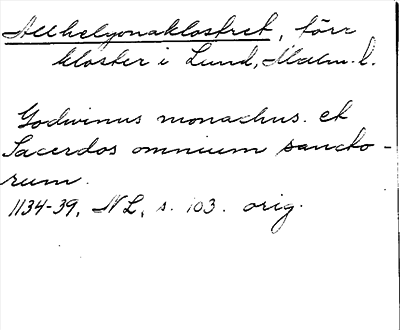 Allhelgonaklostret, förr
kloster i Lund, Malm. l.
Godwinus monachus. et
Sacerdos omnium sancto-
rum.
1134-39, NL, s. 103. orig.